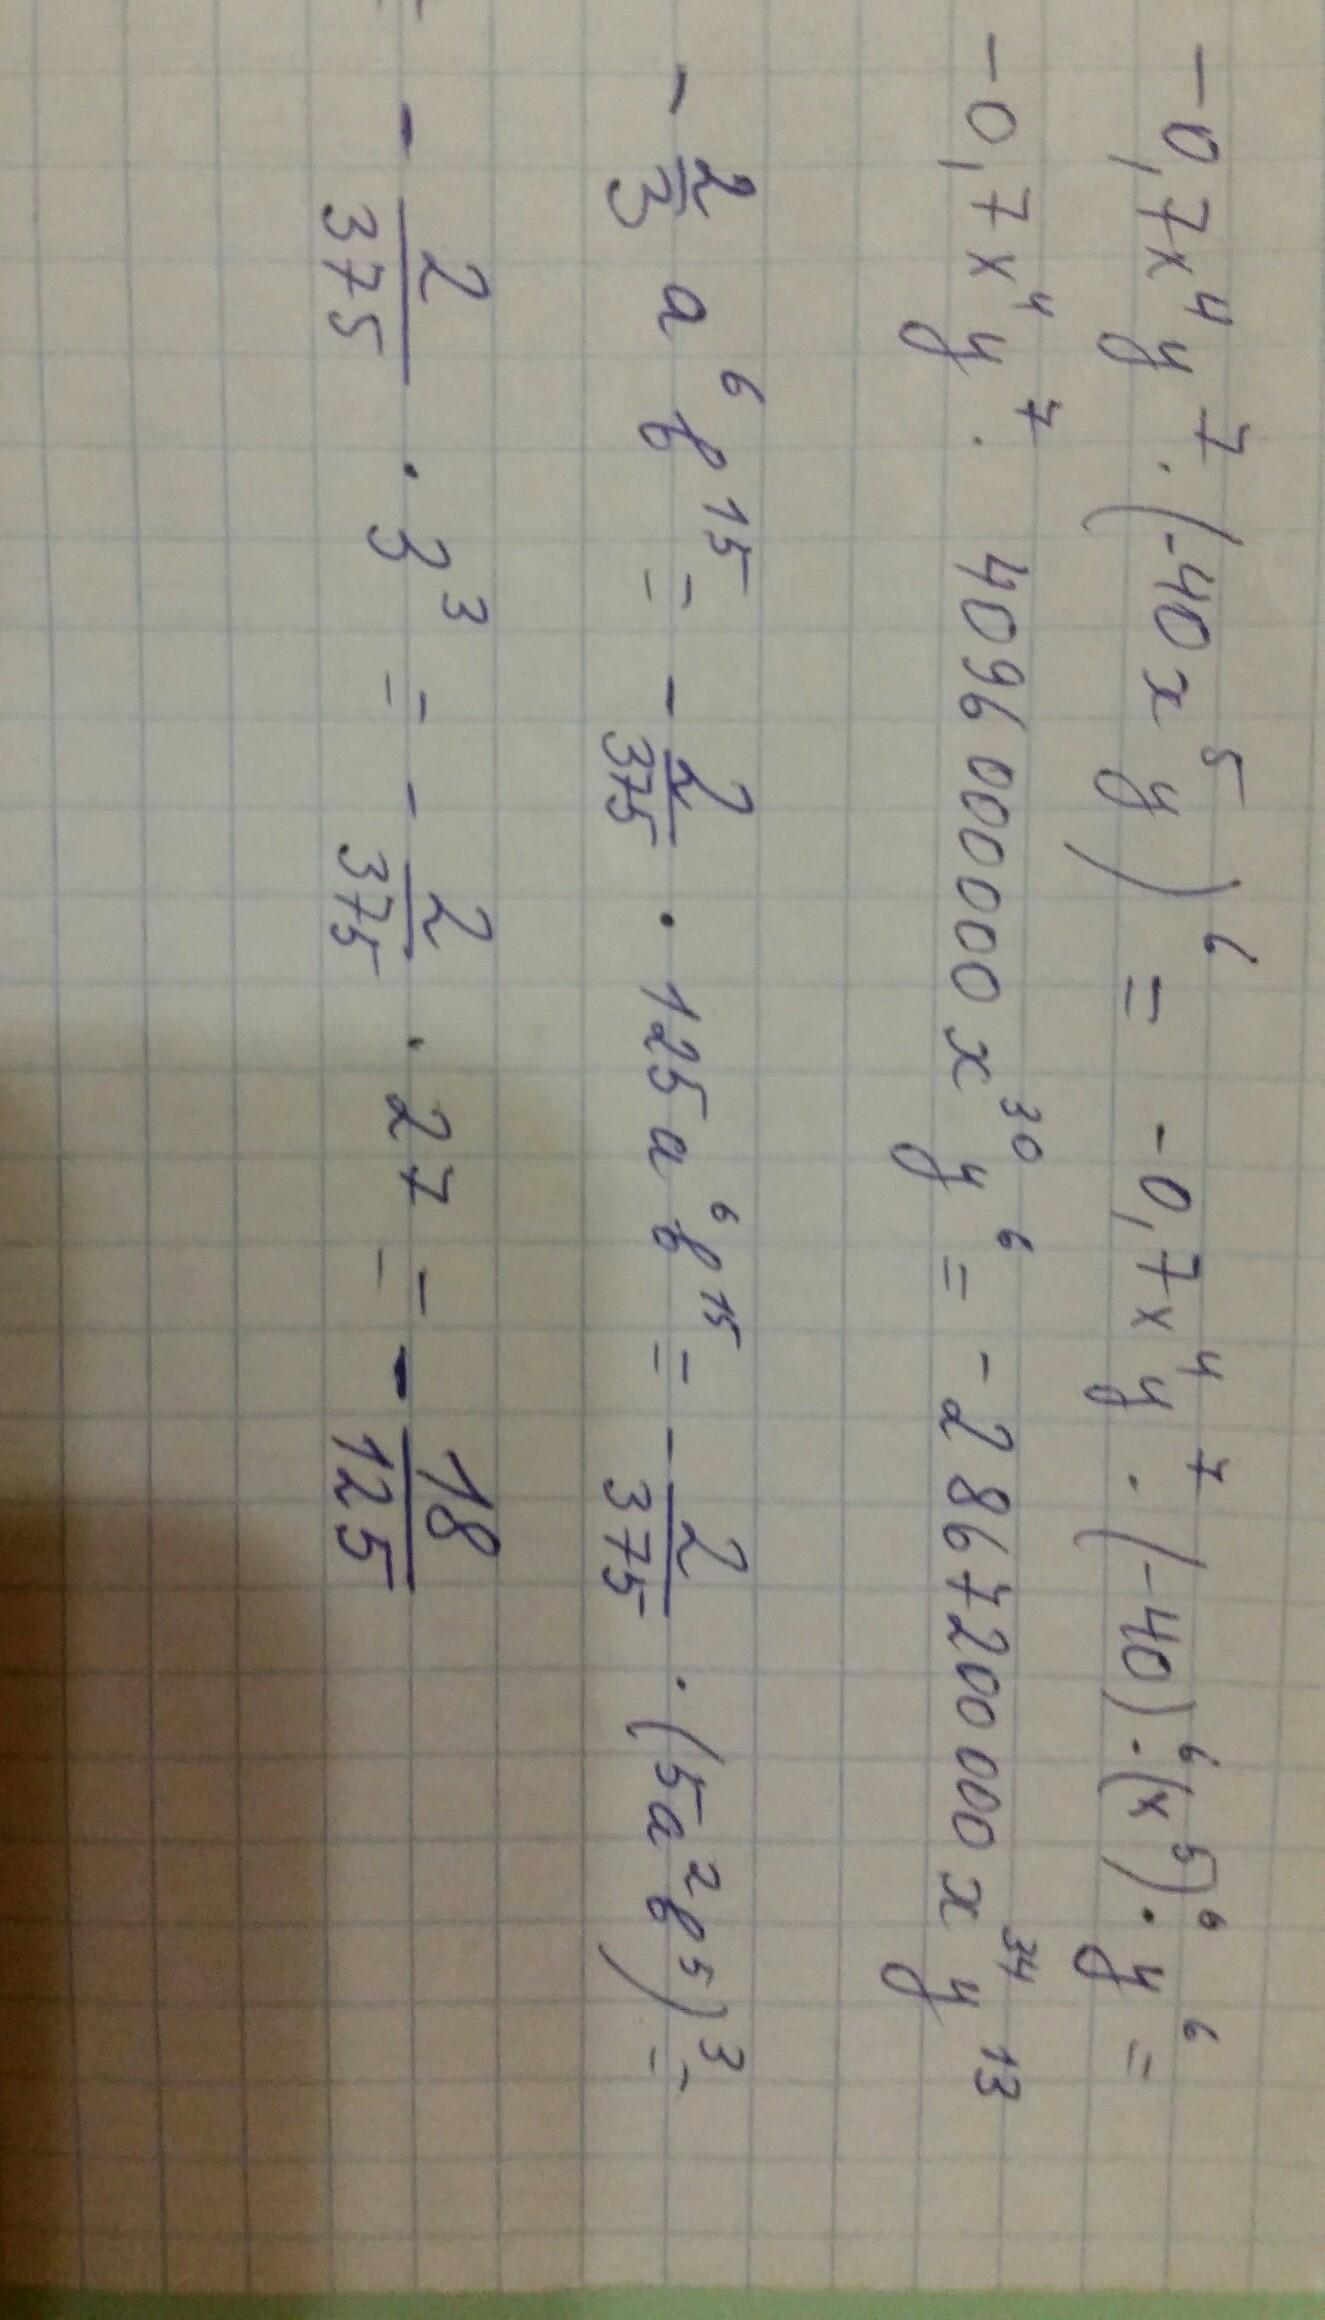 -0,7x⁴y⁷·(-40x⁵y)⁶ = -0,7x⁴y⁷·(-40)⁶·(x⁵)⁶·y⁶=
-0,7x⁴y⁷· 4096 000 0000 x³⁰y⁶ = -2 867 200 000 x³⁴y¹³
-2/3 a⁶b¹⁵ = -2/375 · 125a⁶b¹⁵ = -2/375 ·(5a²b⁵)³=
= -2/375 · 3³ = -2/375 · 27 = -18/125